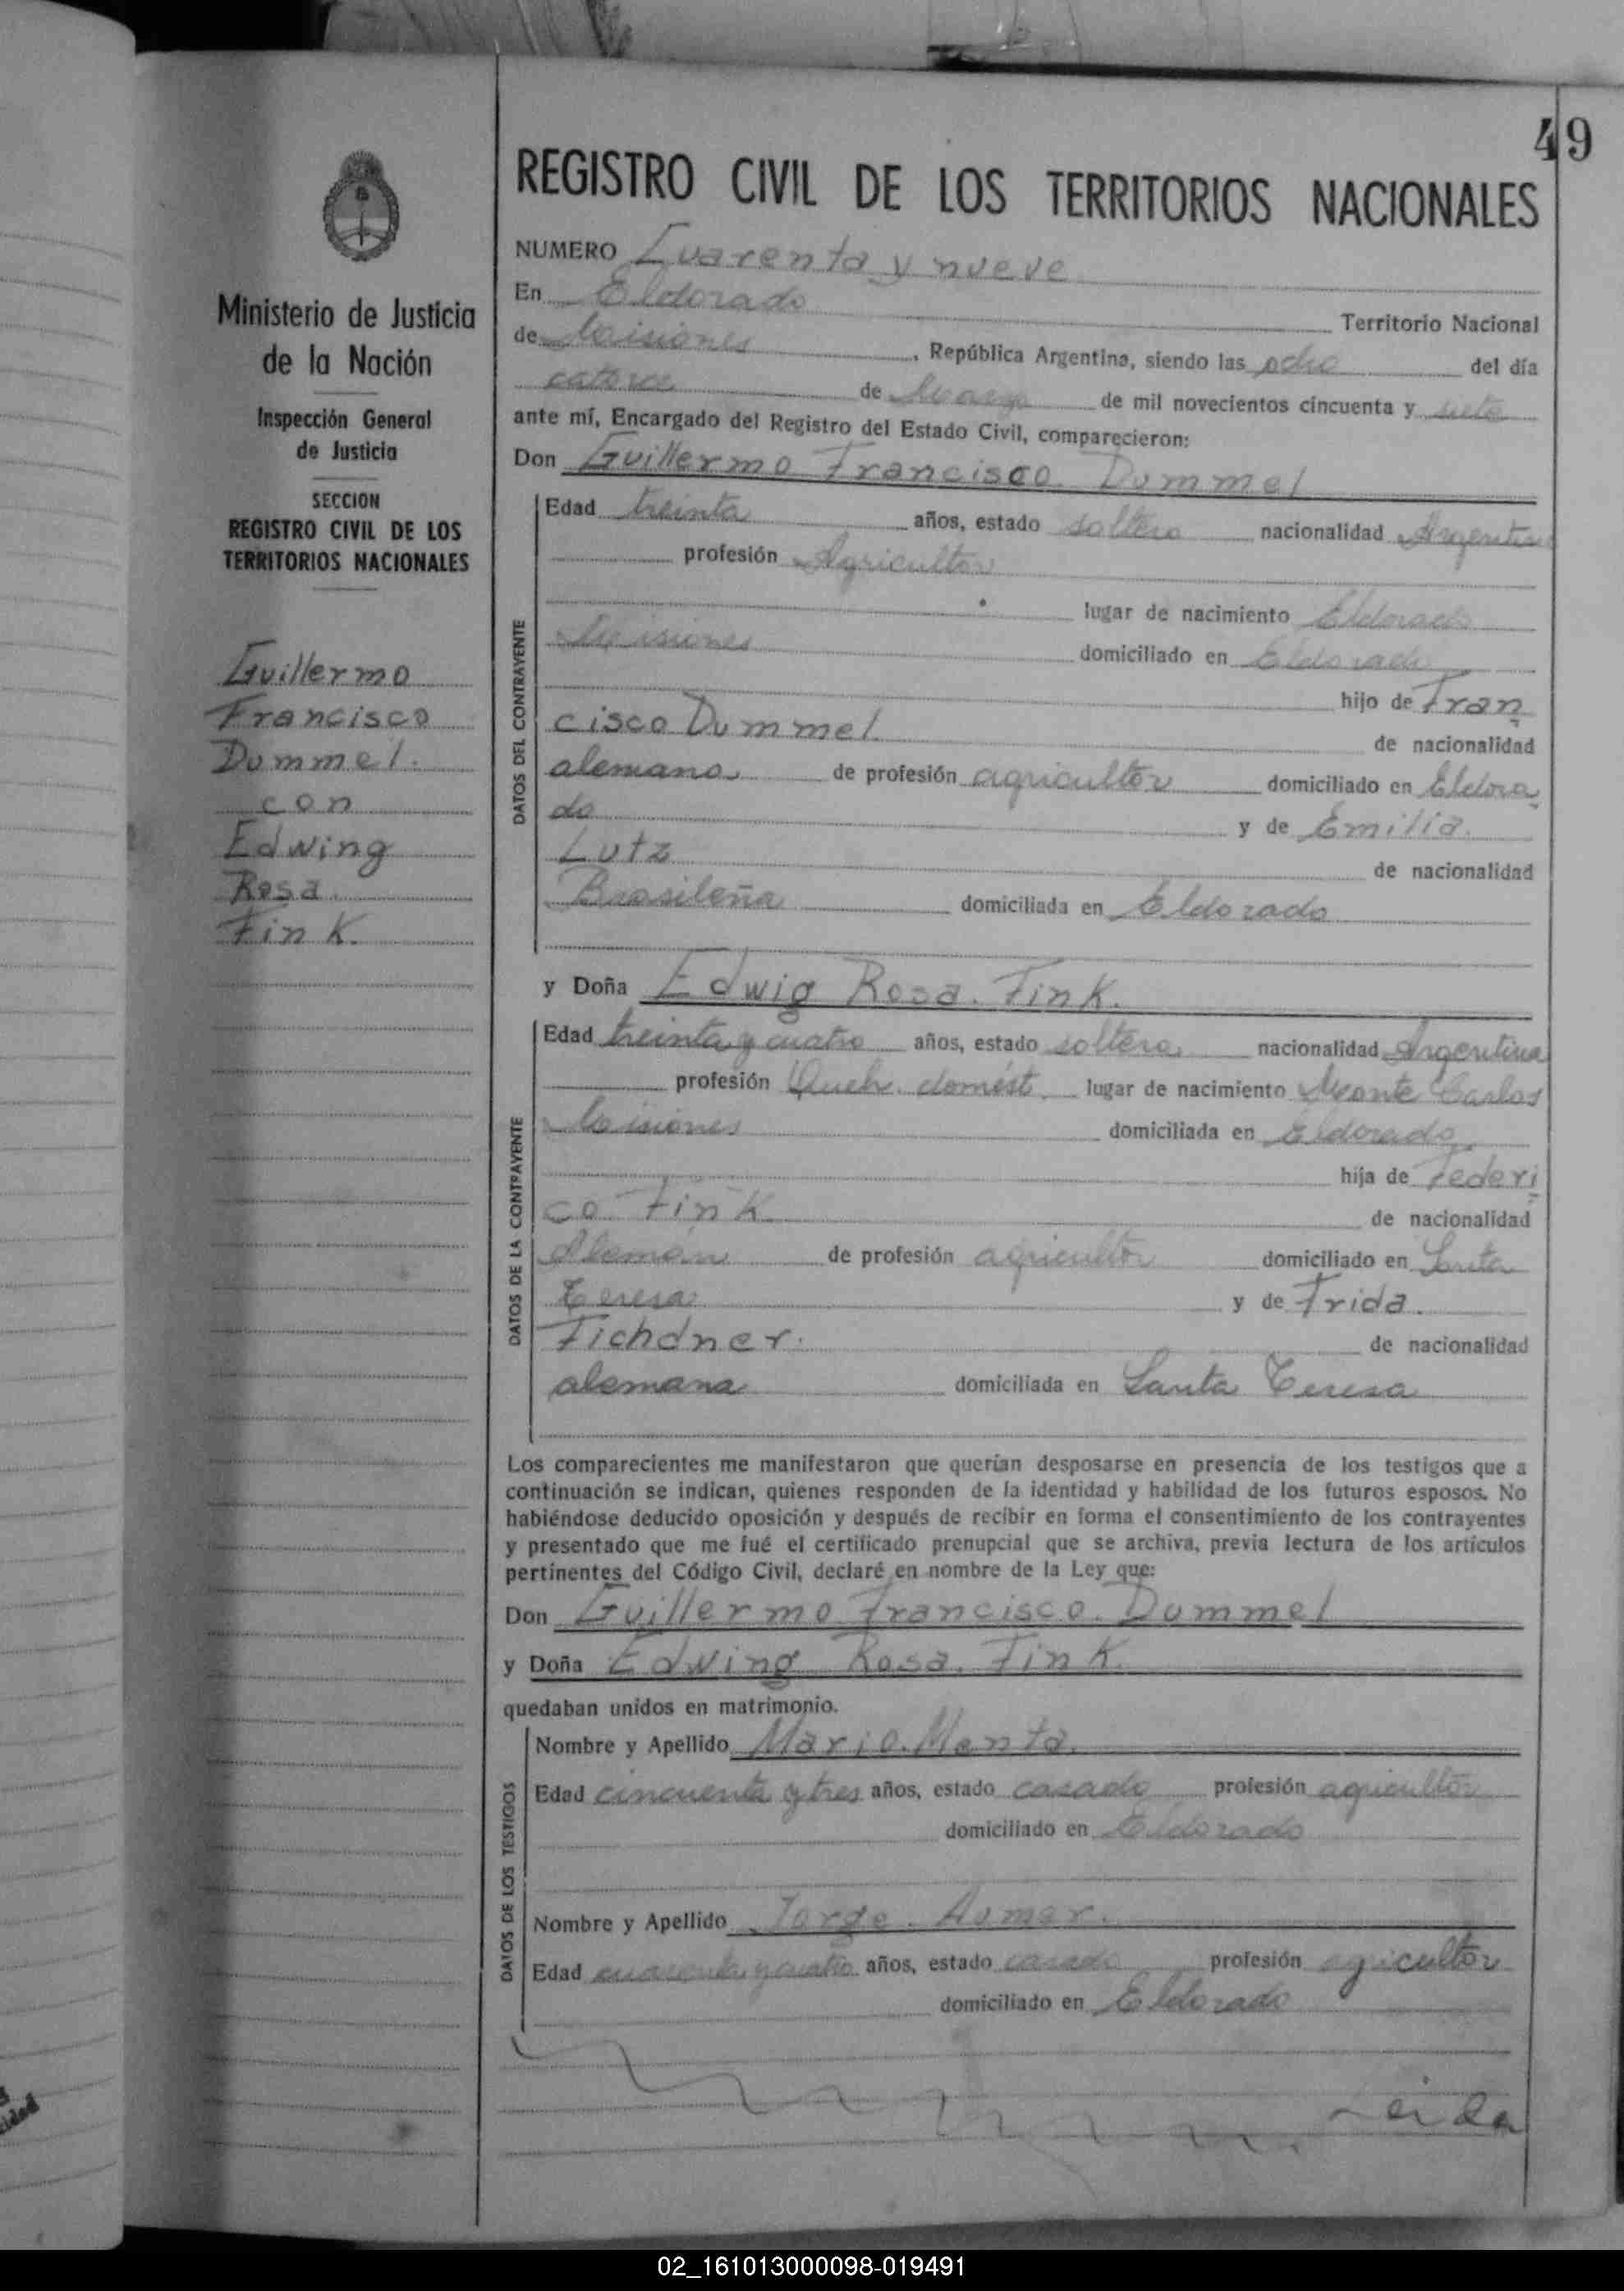 49
REGISTRO CIVIL DE LOS TERRITORIOS NACIONALES
Ministerio de Justicia
de la Nación
Inspección General
de Justicia
SECCION
REGISTRO CIVIL DE LOS
TERRITORIOS NACIONALES
Guillermo
Francisco
Dummel.
con
Edwing
Rosa.
Fink.
NUMERO Cuarenta y nueve
En Eldorado Territorio Nacional
de Misiones, República Argentina, siendo las ocho del día
catorce de Marzo de mil novecientos cincuenta y siete
ante mí, Encargado del Registro del Estado Civil, comparecieron:
Don Guillermo Francisco Dummel
DATOS DEL CONTRAYENTE
Edad treinta años, estado soltero nacionalidad Argentino
profesión Agricultor
lugar de nacimiento Eldorado
Misiones domiciliado en Eldorado
hijo de Fran
cisco Dummel de nacionalidad
alemana de profesión agricultor domiciliado en Eldora
do y de Emilia
Lutz de nacionalidad
Brasileña domiciliada en Eldorado
y Doña Edwig Rosa. Fink.
DATOS DE LA CONTRAYENTE
Edad treinta y cuatro años, estado soltera nacionalidad Argentina
profesión Queh. domést. lugar de nacimiento Monte Carlos
Misiones domiciliada en Eldorado
hija de Federi
co Fink de nacionalidad
Alemán de profesión agricultor domiciliado en Santa
Teresa y de Frida.
Fichdner. de nacionalidad
alemana domiciliada en Santa Teresa
Los comparecientes me manifestaron que querían desposarse en presencia de los testigos que a
continuación se indican, quienes responden de la identidad y habilidad de los futuros esposos. No
habiéndose deducido oposición y después de recibir en forma el consentimiento de los contrayentes
y presentado que me fué el certificado prenupcial que se archiva, previa lectura de los artículos
pertinentes del Código Civil, declaré en nombre de la Ley que:
Don Guillermo Francisco. Dummel
y Doña Edwing Rosa. Fink.
quedaban unidos en matrimonio.
DATOS DE LOS TESTIGOS
Nombre y Apellido Mario. Menta.
Edad cincuenta y tres años, estado casado profesión agricultor
domiciliado en Eldorado
Nombre y Apellido Jorge. Aumer.
Edad cuarenta y cuatro años, estado casado profesión agricultor
domiciliado en Eldorado
Leida
02_161013000098-019491